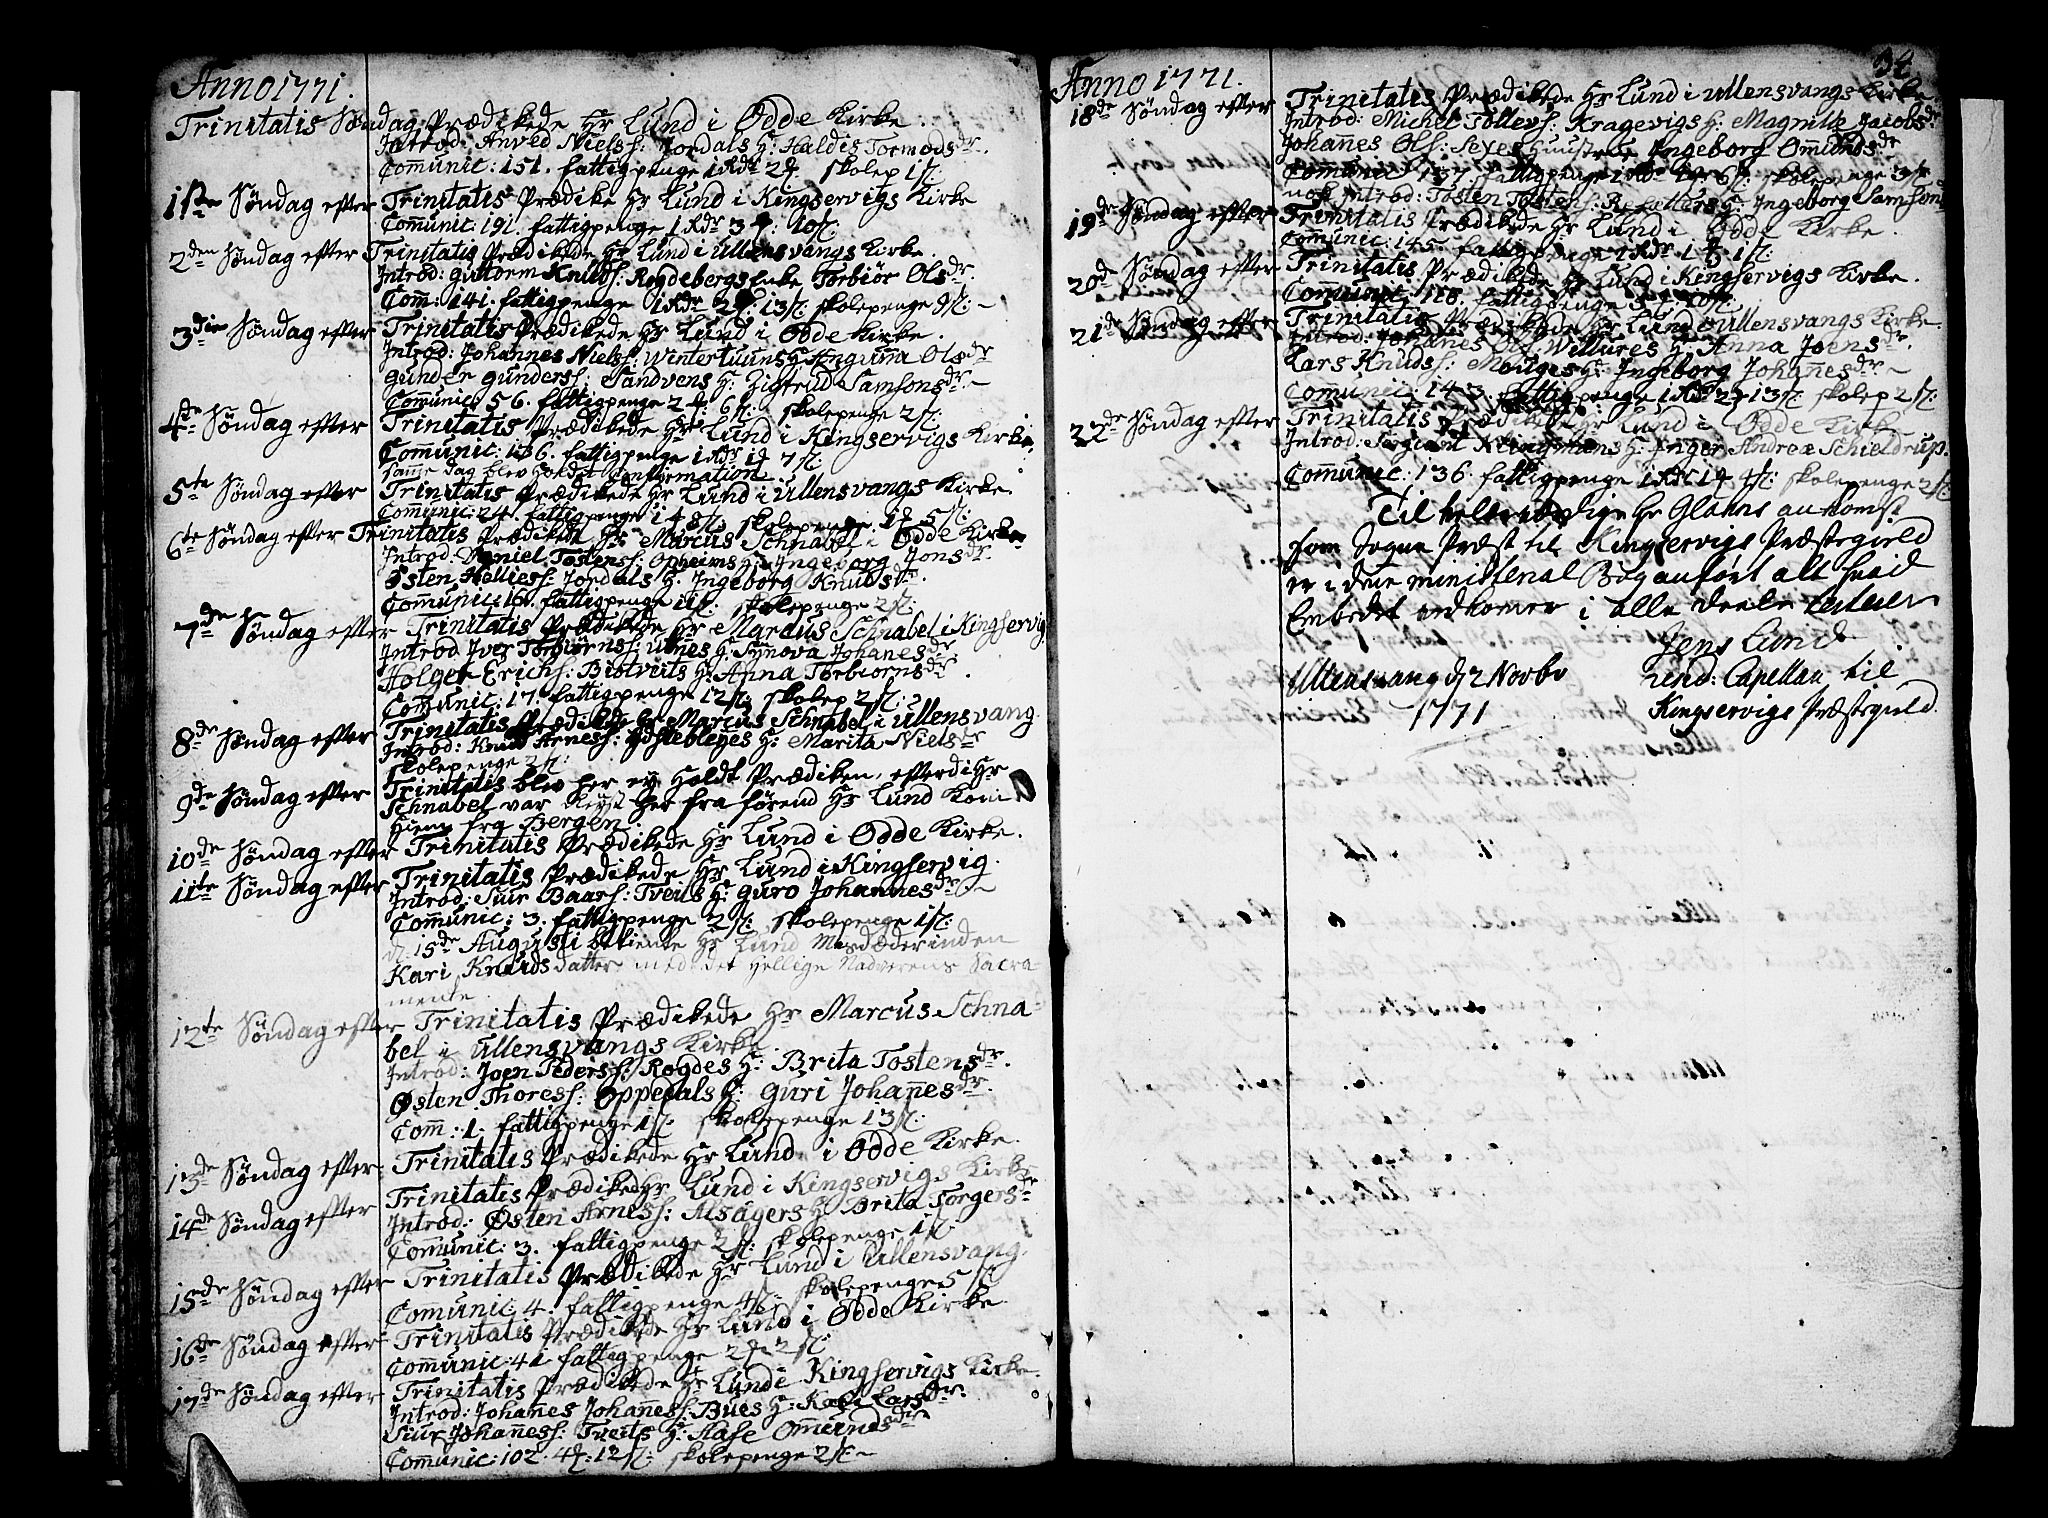 Anno 1771.
Trinitatis Søndag Prædikede Hr Lund i Odde Kirke.
Introd: Anved Niels: Jordals H: Haldis Tormods dr.
Comunic: 151. fattigpenge 1 Rdr 2 skolep 1 s:
1ste Søndag efter Trinitatis Prædike Hr Lund i Kingservigs Kirke
Comunic: 191. fattigpenge 1 Rdr 3 : 10 s:
2den Søndag efter Trinitatis Prædikede Hr Lund i Ullensvangs Kirke.
Introd: Guttorm Knuds: Rogdebergs Enke Torbiør Ols dr.
Com: 141. fattigpenge 1 Rdr 2 : 13 s: skolepenge 9 s:
3die Søndag efter Trinitatis Prædikede Hr Lund i Odde Kirke.
Introd: Johannes Niels: Wintertuuns H: Anguna Ols dr
Gunder Gunders: Sandvens H: Giertrud Samsons dr
Comunic 56. fattigpenge 2 : 6 s: skolepenge 2 s:
4de Søndag efter Trinitatis Prædikede Hr Lund i Kingservigs Kirke
Comunic: 136. fattigpenge 1 Rdr 1 7 s:
samme dag blev holdet Confirmation
5te Søndag efter Trinitatis Prædikede Hr Lund i Ullensvangs Kirke.
Comunic: 24. fattigpenge 1 8 s: skolepenge 1 5 s:
6te Søndag efter Trinitatis Prædikede Hr Marcus Schnabel i Odde Kirke
Introd: Daniel Tostens: Opheims H: Ingeborg Jons dr.
Østen Hellies: Jordals H: Ingeborg Knuds dr.
Comunic: 16. fattigpenge 11 s: skolepenge 2 s:
7de Søndag efter Trinitatis Prædikede Hr Marcus Schnabel i Kingservig
Introd Iver Torbiørns: Utnes H: Synova Johanes dr
Holger Erichs: Bistveits H: Anna Torbiorns dr.
Comunic: 17. fattigpenge 12 s: skolep 2 s:
8de Søndag efter Trinitatis Prædikede Hr Marcus Schnabel i Ullensvang.
Introd: Knud Arnes: H: Marita Niels dr
skolepenge 2 s:
9de Søndag efter Trinitatis blev her ey Holdt Prædiken, efterdi Hr
Schnabel var Reyst her fra førend Hr Lund Kom
Hiem fra Bergen.
10de Søndag efter Trinitatis Prædikede Hr Lund i Odde Kirke.
11te Søndag efter Trinitatis Prædikede Hr Lund i Kingservig.
Introd: Siur Baars: Tveits H: Guro Johannes dr
Comunic: 3. fattigpenge 2 s: skolepenge 1 s:
d. 15de Augusti betiente Hr Lund Misdæderinden
Kari Knuds datter med det Hellige Nadverens Sacra-
mente.
12te Søndag efter Trinitatis Prædikede Hr Marcus Schna-
bel i Ullensvangs Kirke.
Introd: Joen Peders: Rogdes H: Brita Tostens dr.
Østen Thores: Oppedals H: Guri Johannes dr.
Com: 1. fattigpenge 1 s: skolepenge 13 s:
13de Søndag efter Trinitatis Prædikede Hr Lund i Odde Kirke.
14de Søndag efter Trinitatis Prædikede Hr Lund i Kingservigs Kirke
Introd: Østen Arnes: Alsagers H: Brita Torgers dr
Comunic: 3. fattigpenge 2 s: skolepenge 1 s:
15de Søndag efter Trinitatis Prædikede Hr Lund i Ullensvang.
Comunic: 4. fattigpenge 4 s: skolepenge 5 s:
16de Søndag efter Trinitatis Prædikede Hr Lund i Odde Kirke.
Comunic: 41 fattigpenge 2 2 s:
17de Søndag efter Trinitatis Prædikede Hr Lund i Kingservigs Kirke.
Introd: Johanes Johanes: Bues H: Kari Lars dr.
Siur Johanes: Tveits H: Aase Omunds dr
Comunic: 102. 4 : 12 s: skolepenge 2 s:
34
Anno 1771.
18de Søndag efter Trinitatis Prædikede Hr Lund i Ullensvangs Kirke
Introd: Michel Tollevs: Kragevigs H: Magnille Jacobs dr
Johannes Ols: Sexes Huustrue Ingeborg Omunds dr
Comunic: 137. fattigpenge 1 Rdr 1 6 s: skolepenge 3 s
nok Introd: Tosten Tostens: H: Ingeborg Samsons
19de Søndag efter Trinitatis Prædikede Hr Lund i Odde Kirke.
Comunic: 145. fattigpenge 1 Rdr 1 1 s:
20de Søndag efter Trinitatis Prædikede Hr Lund i Kingservigs Kirke.
Comunic: 118. fattigpenge 5 10 s:
21de Søndag efter Trinitatis Prædikede Hr Lund i Ullensvangs Kirke.
Introd: Johanes Ols: Willures H: Anna Joens dr.
Lars Knuds: Mauges H: Ingeborg Johanes dr
Comunic: 143. fattigpenge 1 Rdr 2 13 s: skolep 2 s:
22de Søndag efter Trinitatis Prædikede Hr Lund i Odde Kirke
Introd: Sergiant Klingmans H: Inger Andrea Schieldrup.
Comunic: 136. fattigpenge 1 Rdr 1 4 s: skolepenge 2 s:
Til velærværdige Hr Glahns ankomst
som Sogne Præst til Kingservigs Præstegield
er i dene ministerial Bog anført alt hvad
Embedet vedkomer i alle deele
Jens Lund
Ullensvang d 2 Novbr resid: Capellan til
1771 Kingservigs Præstegield.